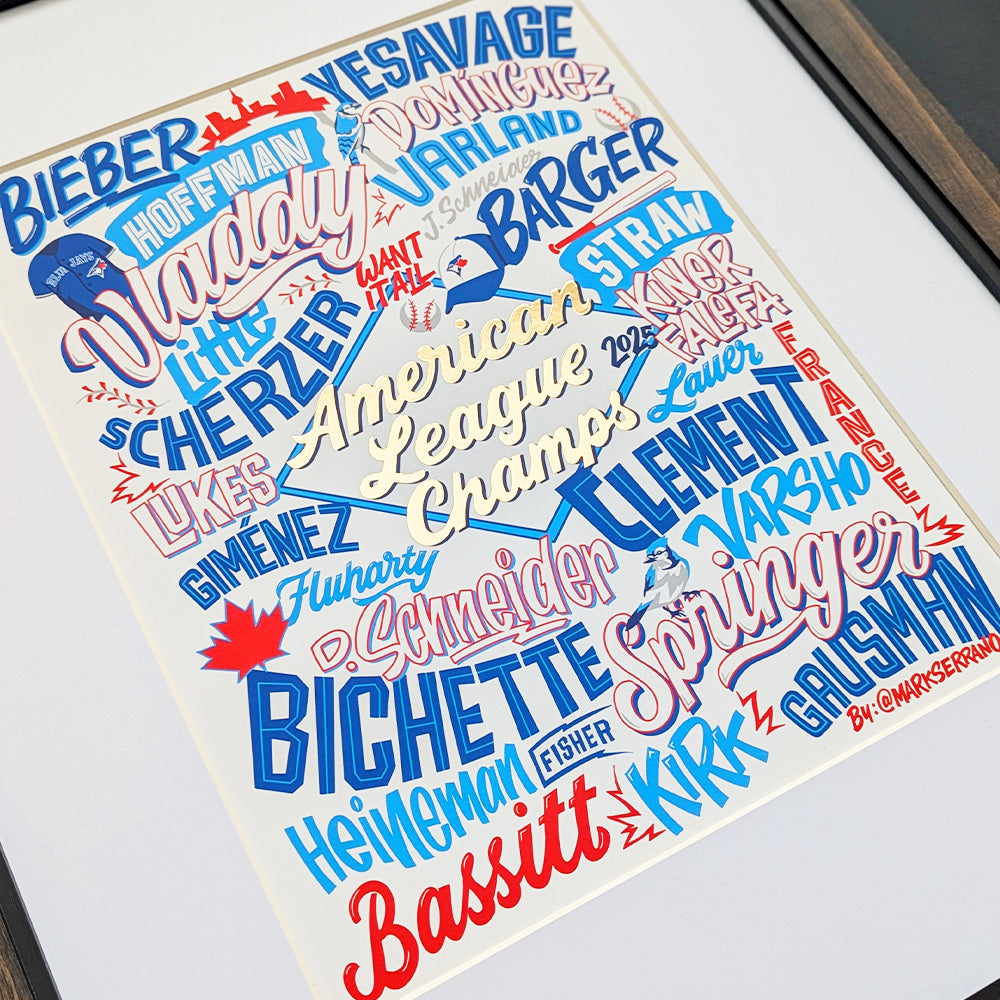 YESAVAGE
DOMÍNGUEZ
BIEBER
HOFFMAN
VARLAND
Vladdy
J. Schneider
BARGER
BLUE JAYS
WANT
IT ALL
STRAW
Little
KINER
FALEFA
SCHERZER
American
League
Champs
2025
Lauer
FRANCE
LUKES
CLEMENT
GIMÉNEZ
VARSHO
Fluharty
D. Schneider
Springer
BICHETTE
GAUSMAN
By: @MARKSERRANO
FISHER
HEINEMAN
KIRK
Bassitt